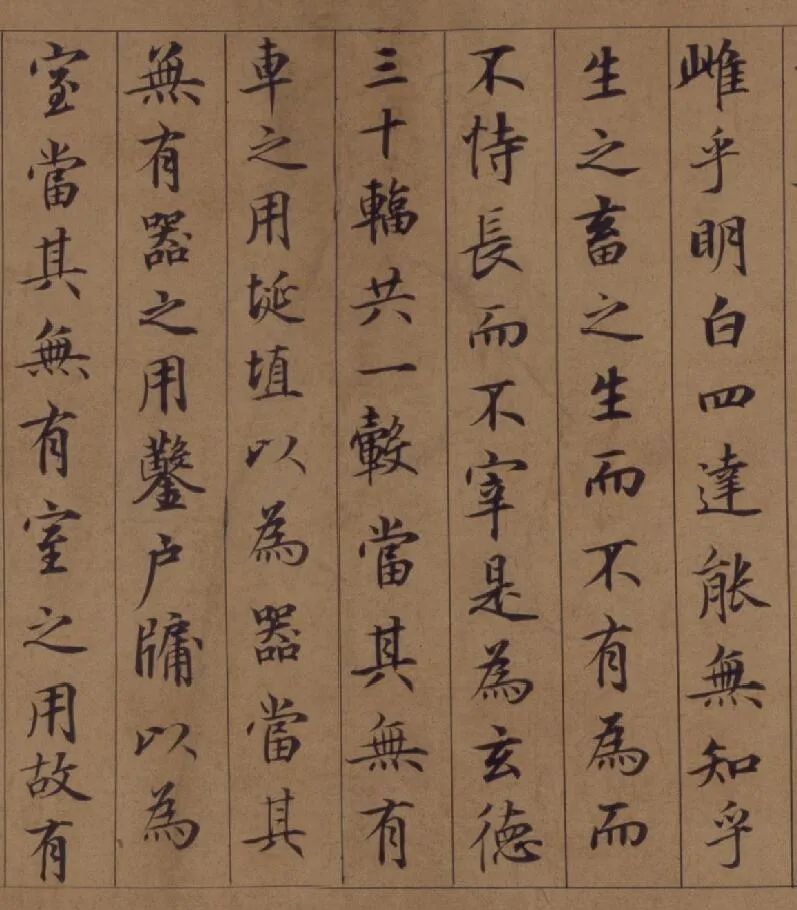 雌乎明白四達能無知乎
生之畜之生而不有為而
不恃長而不宰是為玄德
三十輻共一轂當其無有
車之用埏埴以為器當其
無有器之用鑿户牖以為
室當其無有室之用故有